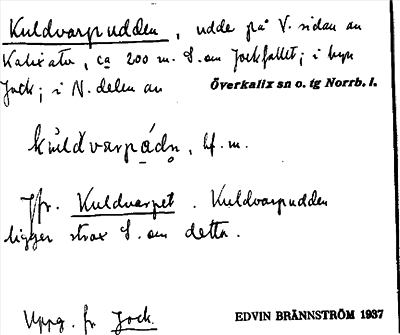 Kuldvarpudden, udde på V. sidan av
Kalixälv, ca 200 m. S. om Jockfallet; i byn
Jock; i N. delen av Överkalix sn o. tg Norrb. l.
kùldvarpádn, bf. m.
Jfr. Kuldvarpet. Kuldvarpudden
ligger strax S. om detta.
Uppg. fr. Jock. EDVIN BRÄNNSTRÖM 1937